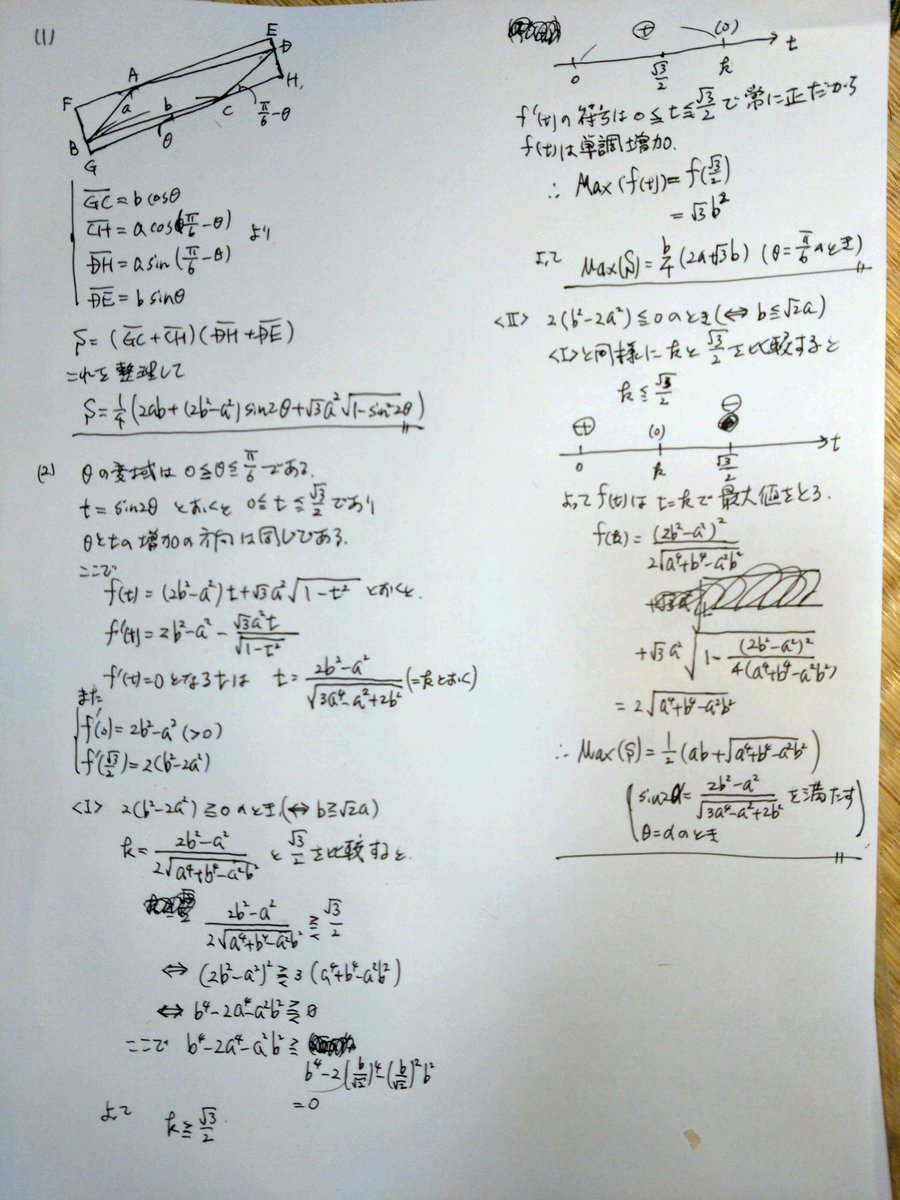 (1)
E
D
H
A
F
a
b
C
π/6-θ
B
θ
G
GC = b cosθ
CH = a cos(π/6-θ)
より
DH = a sin(π/6-θ)
DE = b sinθ
S = (GC+CH)(DH+DE)
これを整理して
S = 1/4 (2ab+(2b²-a²) sin2θ+√3a²√(1-sin²2θ))
(2) θの変域は 0≦θ≦π/6 である.
t = sin2θ とおくと 0≦t≦√3/2 であり
θとtの増加の方向は同じである.
ここで
f(t) = (2b²-a²)t+√3a²√(1-t²) とおくと.
f'(t) = 2b²-a² - √3a²t/√(1-t²)
f'(t)=0 となるtは t = (2b²-a²)/√(3a⁴-a²+2b²) (=kとおく)
また
f'(0) = 2b²-a² (>0)
f'(√3/2) = 2(b²-2a²)
<I> 2(b²-2a²)≧0 のとき, (⇔ b≧√2a)
k = (2b²-a²)/(2√(a⁴+b⁴-a²b²)) と √3/2 を比較すると.
(2b²-a²)/(2√(a⁴+b⁴-a²b²)) ⪌ √3/2
⇔ (2b²-a²)² ⪌ 3(a⁴+b⁴-a²b²)
⇔ b⁴-2a⁴-a²b² ⪌ 0
ここで b⁴-2a⁴-a²b² ≧
b⁴-2(b/√2)⁴-(b/√2)²b²
=0
よって k≧√3/2
⊕ (0)
0 √3/2 k t
f'(t)の符号は 0≦t≦√3/2 で常に正だから
f(t)は単調増加.
∴ Max(f(t)) = f(√3/2)
= √3b²
よって Max(S) = b/4 (2a+√3b) (θ=π/6 のとき)
<II> 2(b²-2a²)≦0 のとき (⇔ b≦√2a)
<I>と同様に kと √3/2 を比較すると
k≦√3/2
⊕ (0) ⊖
0 k √3/2 t
よって f(t)は t=kで最大値をとる.
f(k) = (2b²-a²)²/(2√(a⁴+b⁴-a²b²))
+√3a²√(1-(2b²-a²)²/(4(a⁴+b⁴-a²b²)))
= 2√(a⁴+b⁴-a²b²)
∴ Max(S) = 1/2 (ab+√(a⁴+b⁴-a²b²))
(sin2α = (2b²-a²)/√(3a⁴-a²+2b²) を満たす
θ=αのとき)